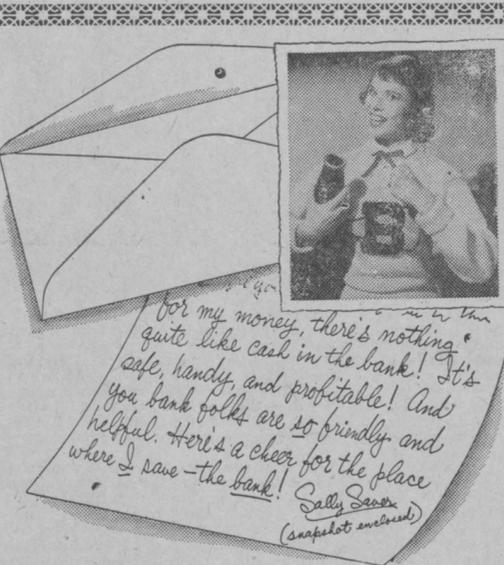 for my money, there's nothing
quite like cash in the bank! It's
safe, handy, and profitable! And
you bank folks are so friendly and
helpful. Here's a cheer for the place
where I save – the bank!
Sally Saver
(snapshot enclosed)